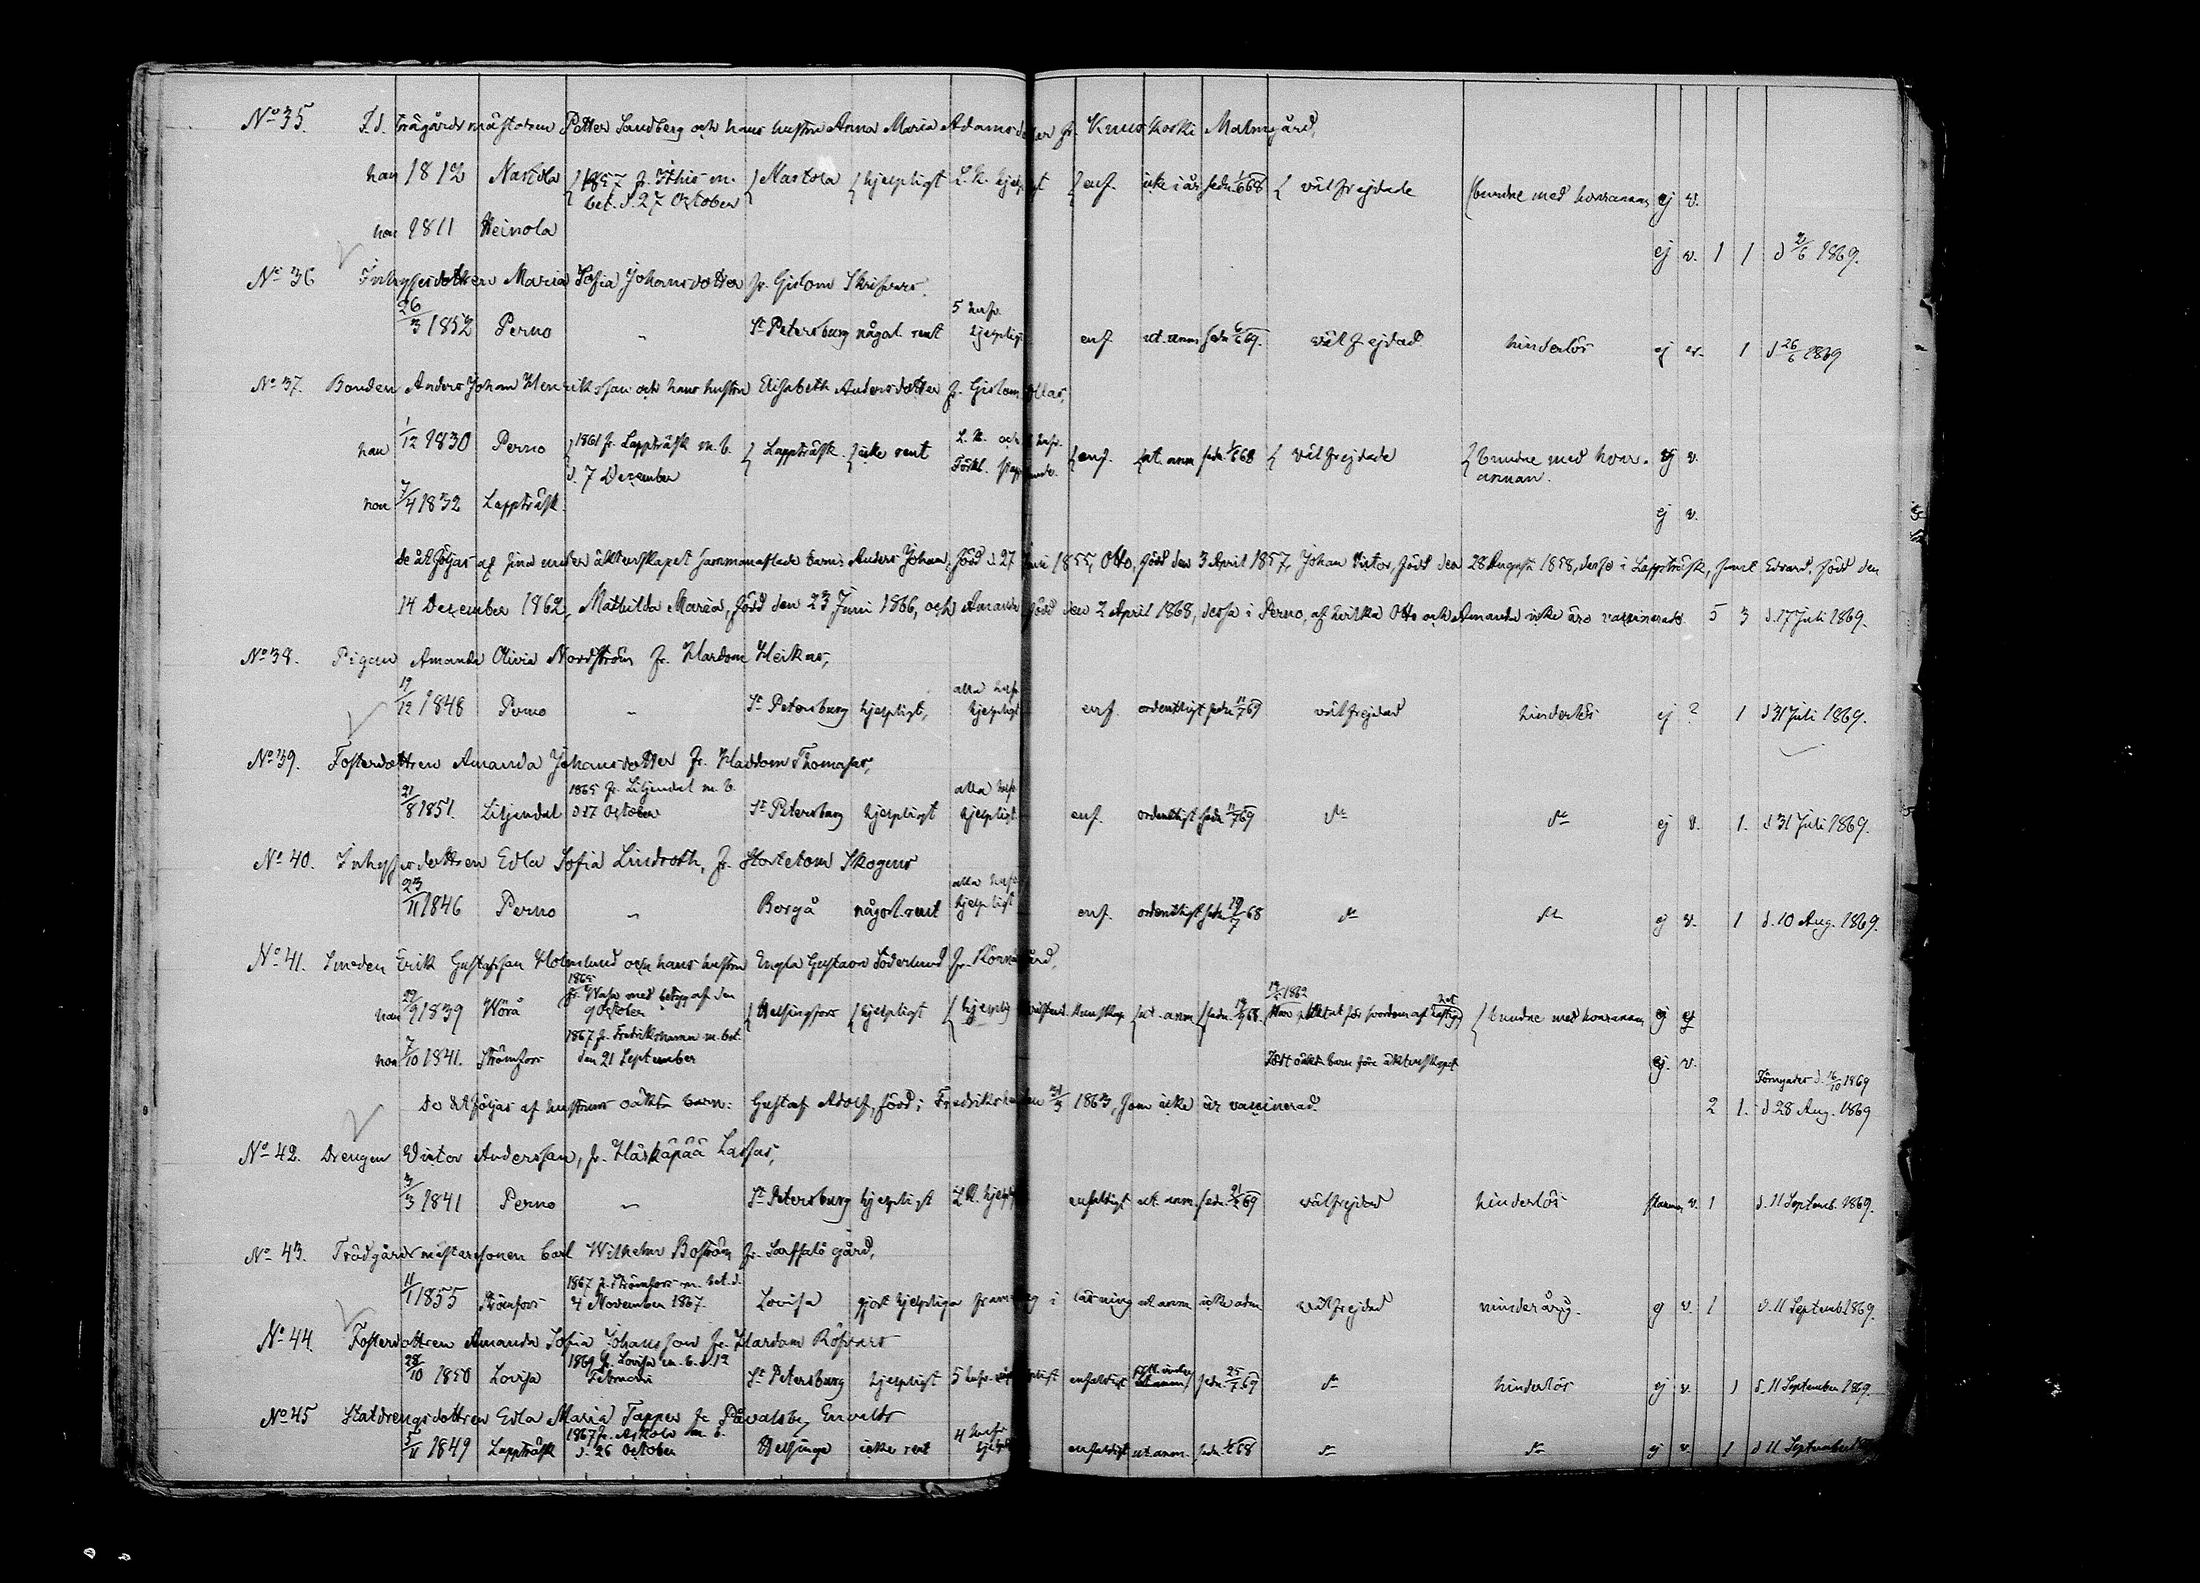 No 35. F.d. trägårdsmästaren Petter Sandberg och hans hustru Anna Maria Adamsdotter fr. Kuuskoski Malmgård,
han 1812 Nastola 1857 fr. Ithis m. bet. d. 27 October Nastola hjelpligt L. K. hjelpligt enf. icke i år sedn. 1/6 68 välfrejdade bundne med hvarannan ej v.
hon 1811 Heinola
ej v. 1 1 d 2/6 1869.
No 36 Inhysesdottren Maria Sofia Johansdotter fr. Gislom Skrifvars.
26/3 1852 Perno " St Petersburg något rent 5 hufv. hjelpligt enf. nt. anm sedn 6/6 69. välfrejdad hinderlös ej v. 1 d 26/6 1869
No 37. Bonden Anders Johan Henriksson och hans hustru Elisabeth Andersdotter fr. Gislom Ollas,
han 1/12 1830 Perno 1861 fr. Lappträsk m. b. d. 7 December Lappträsk icke rent L. K. och hufv. Förkl. enf. nt. anm sedn. 1/6 68 välfrejdade bundne med hvarannan. ej v.
hon 7/4 1832 Lappträsk.
ej v.
de åtföljas af sina under äktenskapet sammanaflade barn: Anders Johan, född d. 27 Juni 1855, Otto, född den 3 April 1857, Johan Victor, född den 28 Augusti 1858, dessa i Lappträsk, samt Edvard, född den
14 December 1862, Mathilda Maria, född den 23 Juni 1866, och Amanda född den 2 April 1868, dessa i Perno, af hvilka Otto och Amanda icke äro vaccinerade 5 3 d. 17 Juli 1869.
No 38. Pigan Amanda Olivia Nordström fr. Hardom Heikas,
19/12 1848 Perno " St Petersburg hjelpligt, alla hufv. hjelpligt enf. ordentligt sedn 11/7 69 välfrejdad hinderlös ej ? 1 d 31 Juli 1869.
No 39. Fosterdottren Amanda Johansdotter fr. Hardom Thomases,
21/8 1851. Liljendal 1865 fr. Liljendal m. b. d 17 October St Petersburg hjelpligt alla hufv. hjelpligt enf. ordentligt sedn 11/7 69 do do ej v. 1. d 31 Juli 1869.
No 40. Inhysesdottren Edla Sofia Lindroth, fr. Skogens
23/11 1846 Perno " Borgå något rent alla hufv. hjelpligt enf. ordentligt sedn 19/7 68 do do ej v. 1 d. 10 Aug. 1869.
No 41. Smeden Erik Gustafsson Holmlund och hans hustru Engla Gustava Söderlund fr. gård,
han 29/9 1839 Wörå 1865 fr. Wasa med betyg af den 9 October Helsingfors hjelpligt hjelplig kunskap nt. anm sedn. 19/7 68. 1862 bundne med hvarannan ej ej
hon 7/10 1841. Strömfors 1867 fr. Fredrikshamn m. bet. den 21 September Födt oäkta barn före äktenskapet ej. v.
Förnyades d. 16/10 1869
De åtföljas af hustruns oäkta barn: Gustaf Adolf, född i Fredrikshamn 1863, som icke är vaccinerad. 2 1. d 28 Aug. 1869
No 42. Drengen Victor Andersson, fr. Häskäpää Lassas,
3/3 1841 Perno " St Petersburg hjelpligt L. K. enfaldigt nt. anm. sedn. 69 välfrejdad hinderlös v. 1 d. 11 Septemb. 1869.
No 43. Trädgårdsmästarsonen Carl Wilhelm Boström fr. Sarfsalö gård,
11/1 1855 Strömfors 1867 fr. Strömfors m. bet. d. 4 November 1867. Lovisa gjort hjelpliga framsteg i läsning nt anm. icke adm välfrejdad minderårig. ej v. 1 d. 11 Septemb 1869.
No 44. Fosterdottren Amanda Sofia Johansson fr. Hardom Röfvars
28/10 1850 Lovisa 1869 fr. Lovisa m. b. d. 12 Februari St Petersburg hjelpligt 5 hufv. enfaldigt sedn. 69 do hinderlös ej v. 1 d. 11 September 1869.
No 45 Statdrengsdottren Edla Maria Tapper fr Påvalsby Envalds
5/11 1849 Lappträsk 1867 fr. Askola m. b. d. 26 October Helsinge icke rent 4 hufv. enfaldigt nt anm. sedn. 68 do do ej v. 1 d 11 September